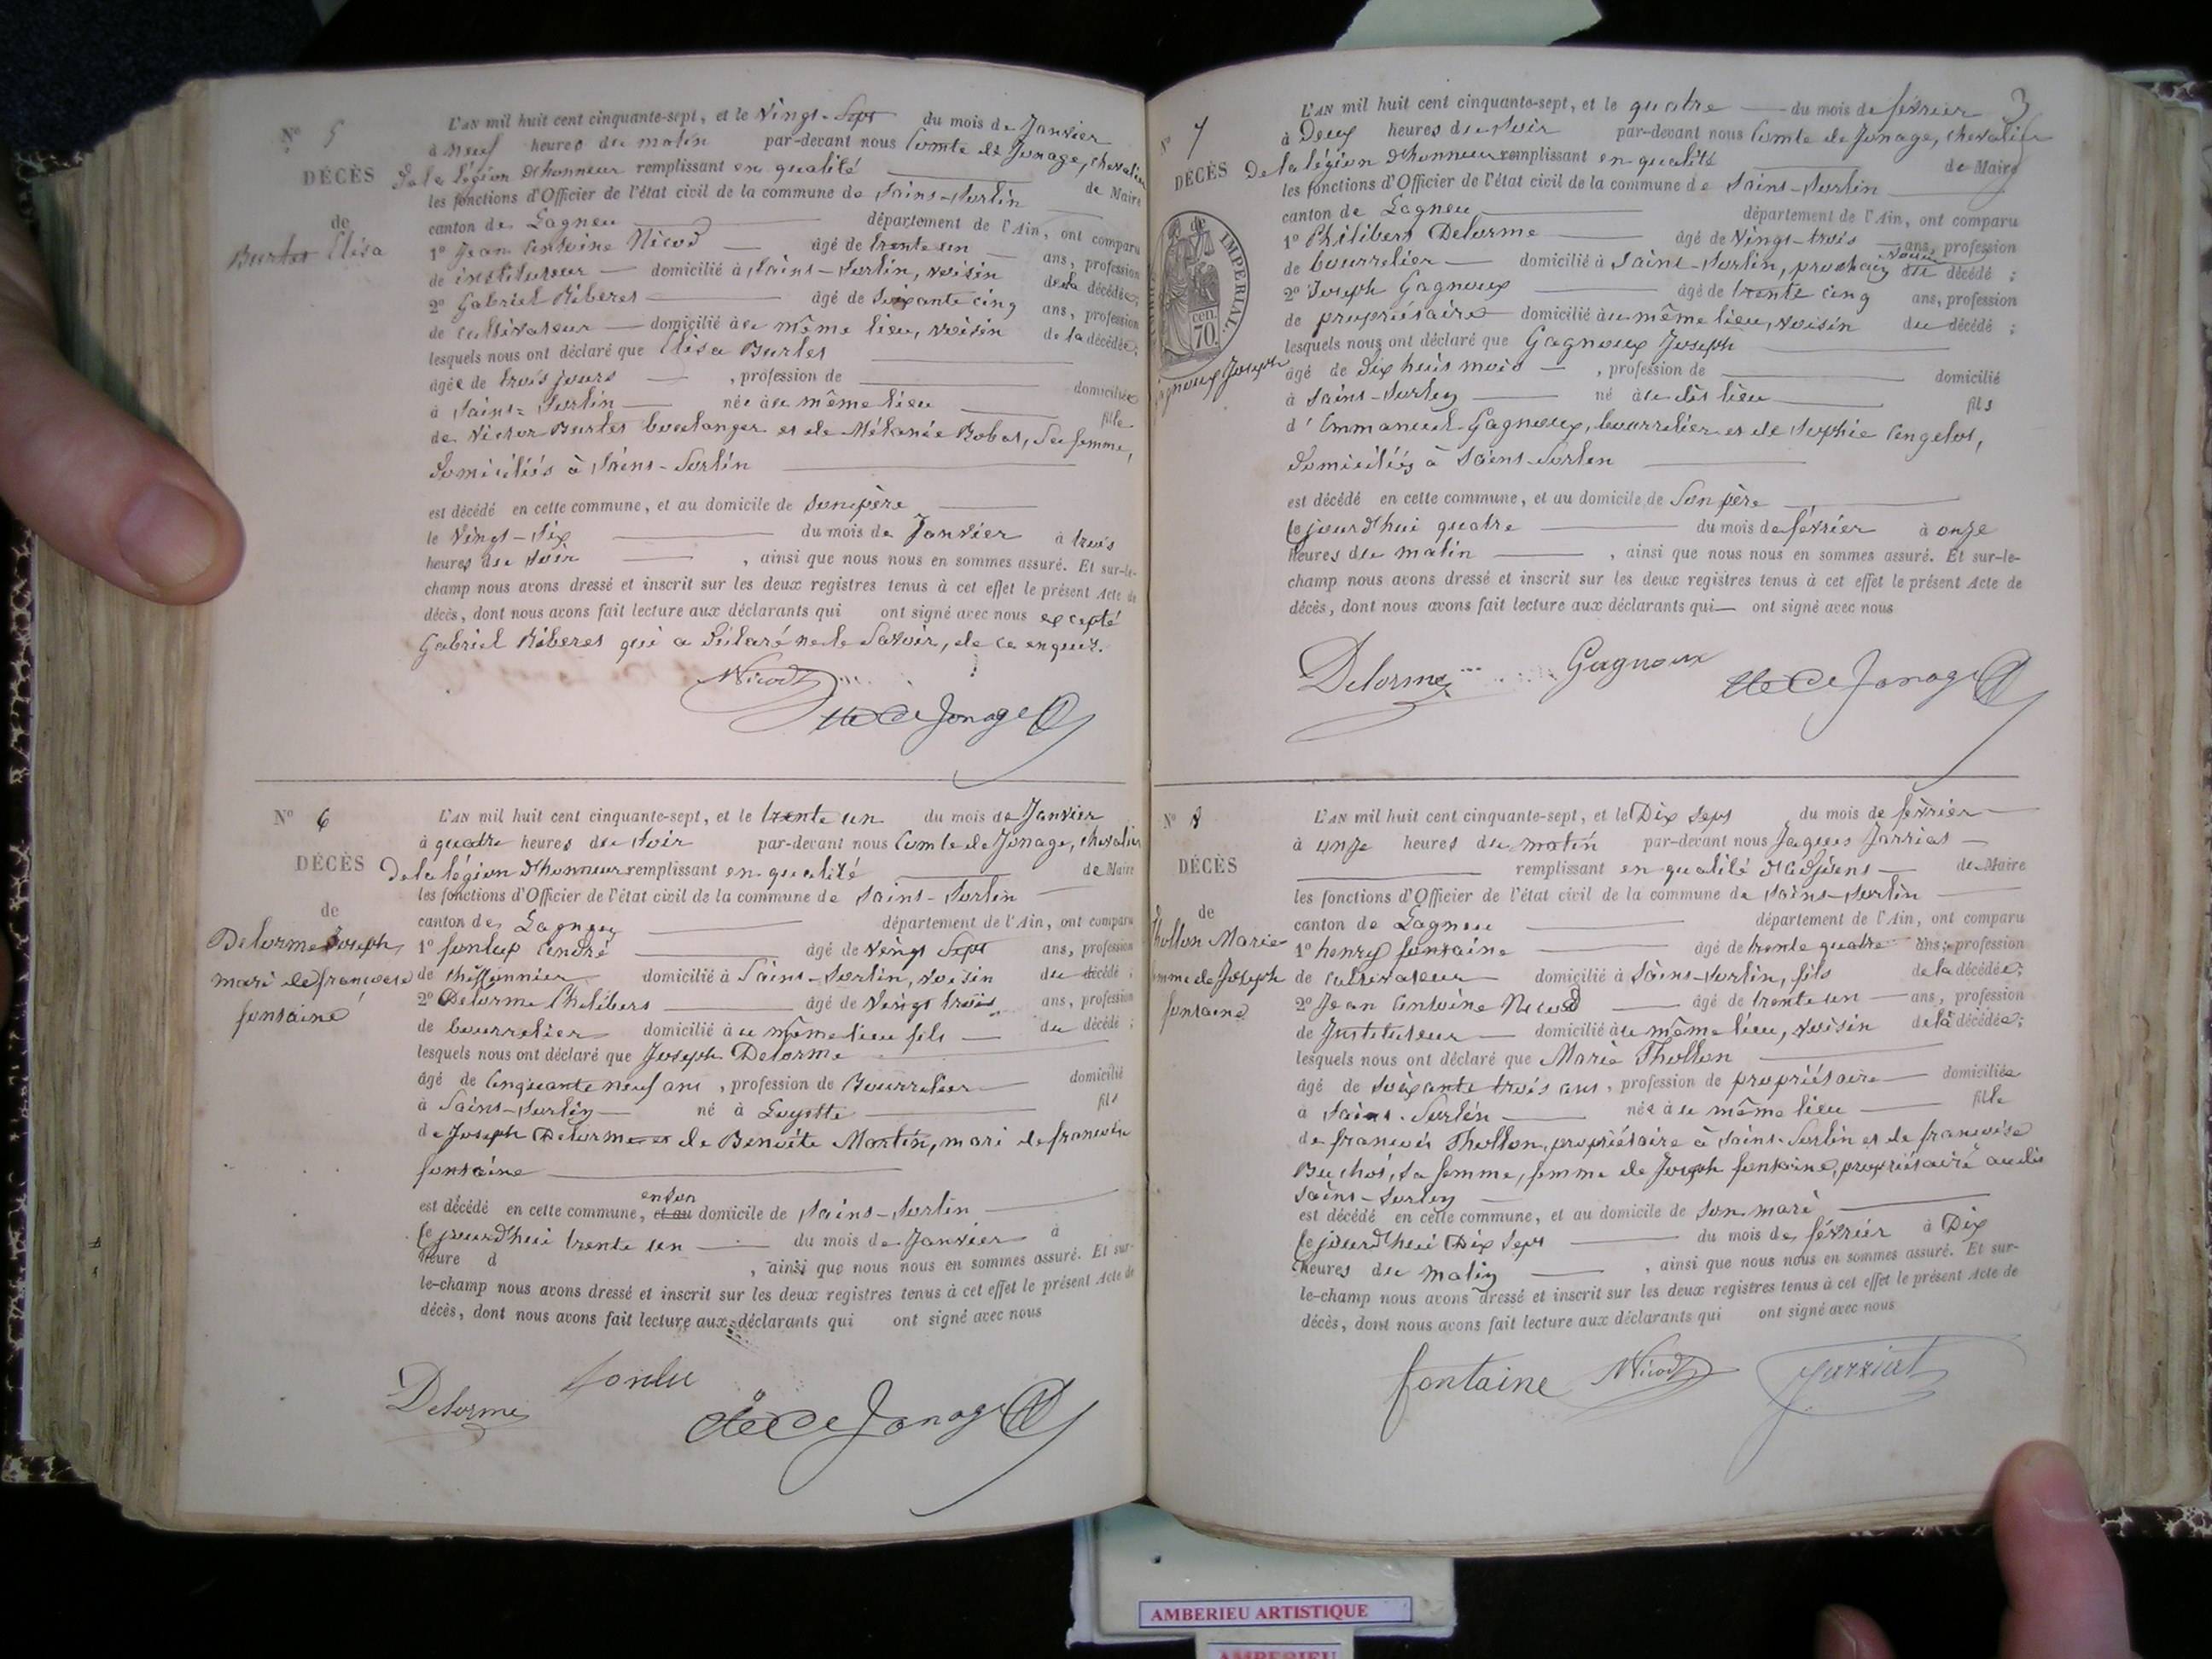 N° 5
DÉCÈS
de
Burtet Elisa
L'AN mil huit cent cinquante-sept, et le vingt-sept du mois de Janvier
à neuf heures du matin par-devant nous Comte de Jonage, chevalier
de la légion d'honneur remplissant en qualité de Maire
les fonctions d'Officier de l'état civil de la commune de Saint-Sorlin
canton de Lagneu département de l'Ain, ont comparu
1° Jean Antoine Nicod âgé de trente un ans, profession
de instituteur domicilié à Saint-Sorlin, voisin de la décédée;
2° Gabriel Riberet âgé de soixante cinq ans, profession
de cultivateur domicilié à ce même lieu, voisin de la décédée;
lesquels nous ont déclaré que Elisa Burtet
âgée de trois jours , profession de domiciliée
à Saint-Sorlin née à ce même lieu fille
de Victor Burtet boulanger et de Mélanie Robat, sa femme,
domiciliés à Saint-Sorlin
est décédé en cette commune, et au domicile de son père
le vingt-six du mois de Janvier à trois
heures du soir , ainsi que nous nous en sommes assuré. Et sur-le-
champ nous avons dressé et inscrit sur les deux registres tenus à cet effet le présent Acte de
décès, dont nous avons fait lecture aux déclarants qui ont signé avec nous excepté
Gabriel Riberet qui a déclaré ne le savoir, de ce enquis.
Nicod
Cte de Jonage
N° 6
DÉCÈS
de
Delorme Joseph
mari de françoise
fontaine
L'AN mil huit cent cinquante-sept, et le trente un du mois de Janvier
à quatre heures du soir par-devant nous Comte de Jonage, chevalier
de la légion d'honneur remplissant en qualité de Maire
les fonctions d'Officier de l'état civil de la commune de Saint-Sorlin
canton de Lagneu département de l'Ain, ont comparu
1° fonlup André âgé de vingt sept ans, profession
de chiffonnier domicilié à Saint-Sorlin, voisin du décédé;
2° Delorme Philibert âgé de vingt trois ans, profession
de bourrelier domicilié à ce même lieu fils du décédé;
lesquels nous ont déclaré que Joseph Delorme
âgé de Cinquante neuf ans , profession de Bourrelier domicilié
à Saint-Sorlin né à Loyette fils
de Joseph Delorme et de Benoite Martin, mari de françoise
fontaine
en son
est décédé en cette commune, et au domicile de Saint-Sorlin
Cejourd'hui trente un du mois de Janvier à
heure d , ainsi que nous nous en sommes assuré. Et sur-
le-champ nous avons dressé et inscrit sur les deux registres tenus à cet effet le présent Acte de
décès, dont nous avons fait lecture aux déclarants qui ont signé avec nous
Delorme fonlu
Cte de Jonage
3
N° 7
DÉCÈS
de
IMPERIAL.
70 cen.
Joseph
L'AN mil huit cent cinquante-sept, et le quatre du mois de février
à Deux heures du soir par-devant nous Comte de Jonage, chevalier
de la légion d'honneur remplissant en qualité de Maire
les fonctions d'Officier de l'état civil de la commune de Saint-Sorlin
canton de Lagneu département de l'Ain, ont comparu
1° Philibert Delorme âgé de vingt-trois ans, profession
de bourrelier domicilié à Saint-Sorlin, prochain voisin du décédé;
2° Joseph Gagnoux âgé de trente cinq ans, profession
de propriétaire domicilié à ce même lieu, voisin du décédé;
lesquels nous ont déclaré que Gagnoux Joseph
âgé de Dix huit mois , profession de domicilié
à Saint-Sorlin né à ce dit lieu fils
d'Emmanuel Gagnoux, bourrelier et de Sophie Angelot,
domiciliés à Saint-Sorlin
est décédé en cette commune, et au domicile de Son père
Cejourd'hui quatre du mois de février à onze
heures du matin , ainsi que nous nous en sommes assuré. Et sur-le-
champ nous avons dressé et inscrit sur les deux registres tenus à cet effet le présent Acte de
décès, dont nous avons fait lecture aux déclarants qui ont signé avec nous
Delorme Gagnoux Cte de Jonage
N° 8
DÉCÈS
de
Thollon Marie
femme de Joseph
fontaine
L'AN mil huit cent cinquante-sept, et le Dix sept du mois de février
à onze heures du matin par-devant nous Jaques Jarrias
remplissant en qualité d'Adjoint de Maire
les fonctions d'Officier de l'état civil de la commune de Saint-Sorlin
canton de Lagneu département de l'Ain, ont comparu
1° henry fontaine âgé de trente quatre ans, profession
de cultivateur domicilié à Saint-Sorlin, fils de la décédée;
2° Jean Antoine Nicod âgé de trente un ans, profession
de Instituteur domicilié à ce même lieu, voisin de la décédée;
lesquels nous ont déclaré que Marie Thollon
âgé de soixante trois ans, profession de propriétaire domiciliée
à Saint-Sorlin née à ce même lieu fille
de françois Thollon, propriétaire à Saint-Sorlin et de françoise
Buchot, sa femme, femme de Joseph fontaine, propriétaire audit
Saint-Sorlin
est décédé en cette commune, et au domicile de son mari
Cejourd'hui Dix sept du mois de février à Dix
heures du matin , ainsi que nous nous en sommes assuré. Et sur-
le-champ nous avons dressé et inscrit sur les deux registres tenus à cet effet le présent Acte de
décès, dont nous avons fait lecture aux déclarants qui ont signé avec nous
fontaine Nicod Jarriat
AMBERIEU ARTISTIQUE
AMBERIEU